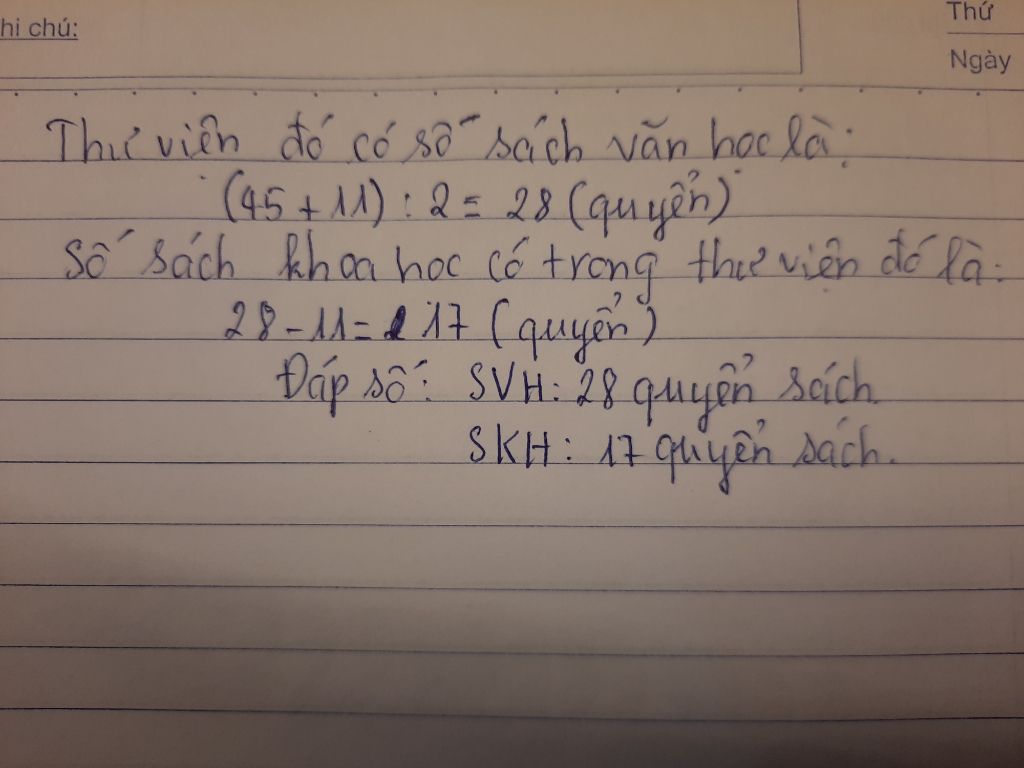 hi chú:
Thứ
Ngày
Thư viện đó có số sách văn học là:
(45 + 11) : 2 = 28 (quyển)
Số sách khoa học có trong thư viện đó là:
28 - 11 = 17 (quyển)
Đáp số: SVH: 28 quyển sách.
SKH: 17 quyển sách.